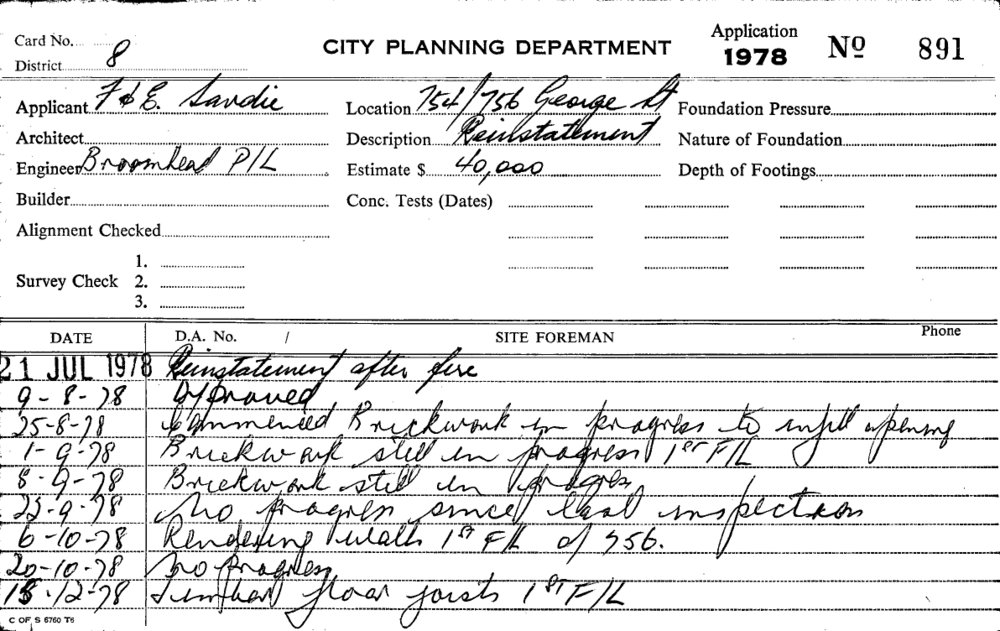 Card No. CITY PLANNING DEPARTMENT Application 1978 Nº 891
District 8
Applicant F & E. Sardie Location 754/756 George St Foundation Pressure
Architect Description Reinstatement Nature of Foundation
Engineer Broomhead P/L Estimate $ 40,000 Depth of Footings
Builder Conc. Tests (Dates)
Alignment Checked
Survey Check 1.
2.
3.
DATE D.A. No. / SITE FOREMAN Phone
21 JUL 1978 Reinstatement after fire
9-8-78 Approved
25-8-78 Commenced Brickwork in progress to infill opening
1-9-78 Brickwork still in progress 1ST F/L
8-9-78 Brickwork still in progress
22-9-78 No progress since last inspection
6-10-78 Rendering walls 1st F/L of 756.
20-10-78 No progress
18-12-78 Timber floor joists 1ST F/L
C OF S 6760 T6